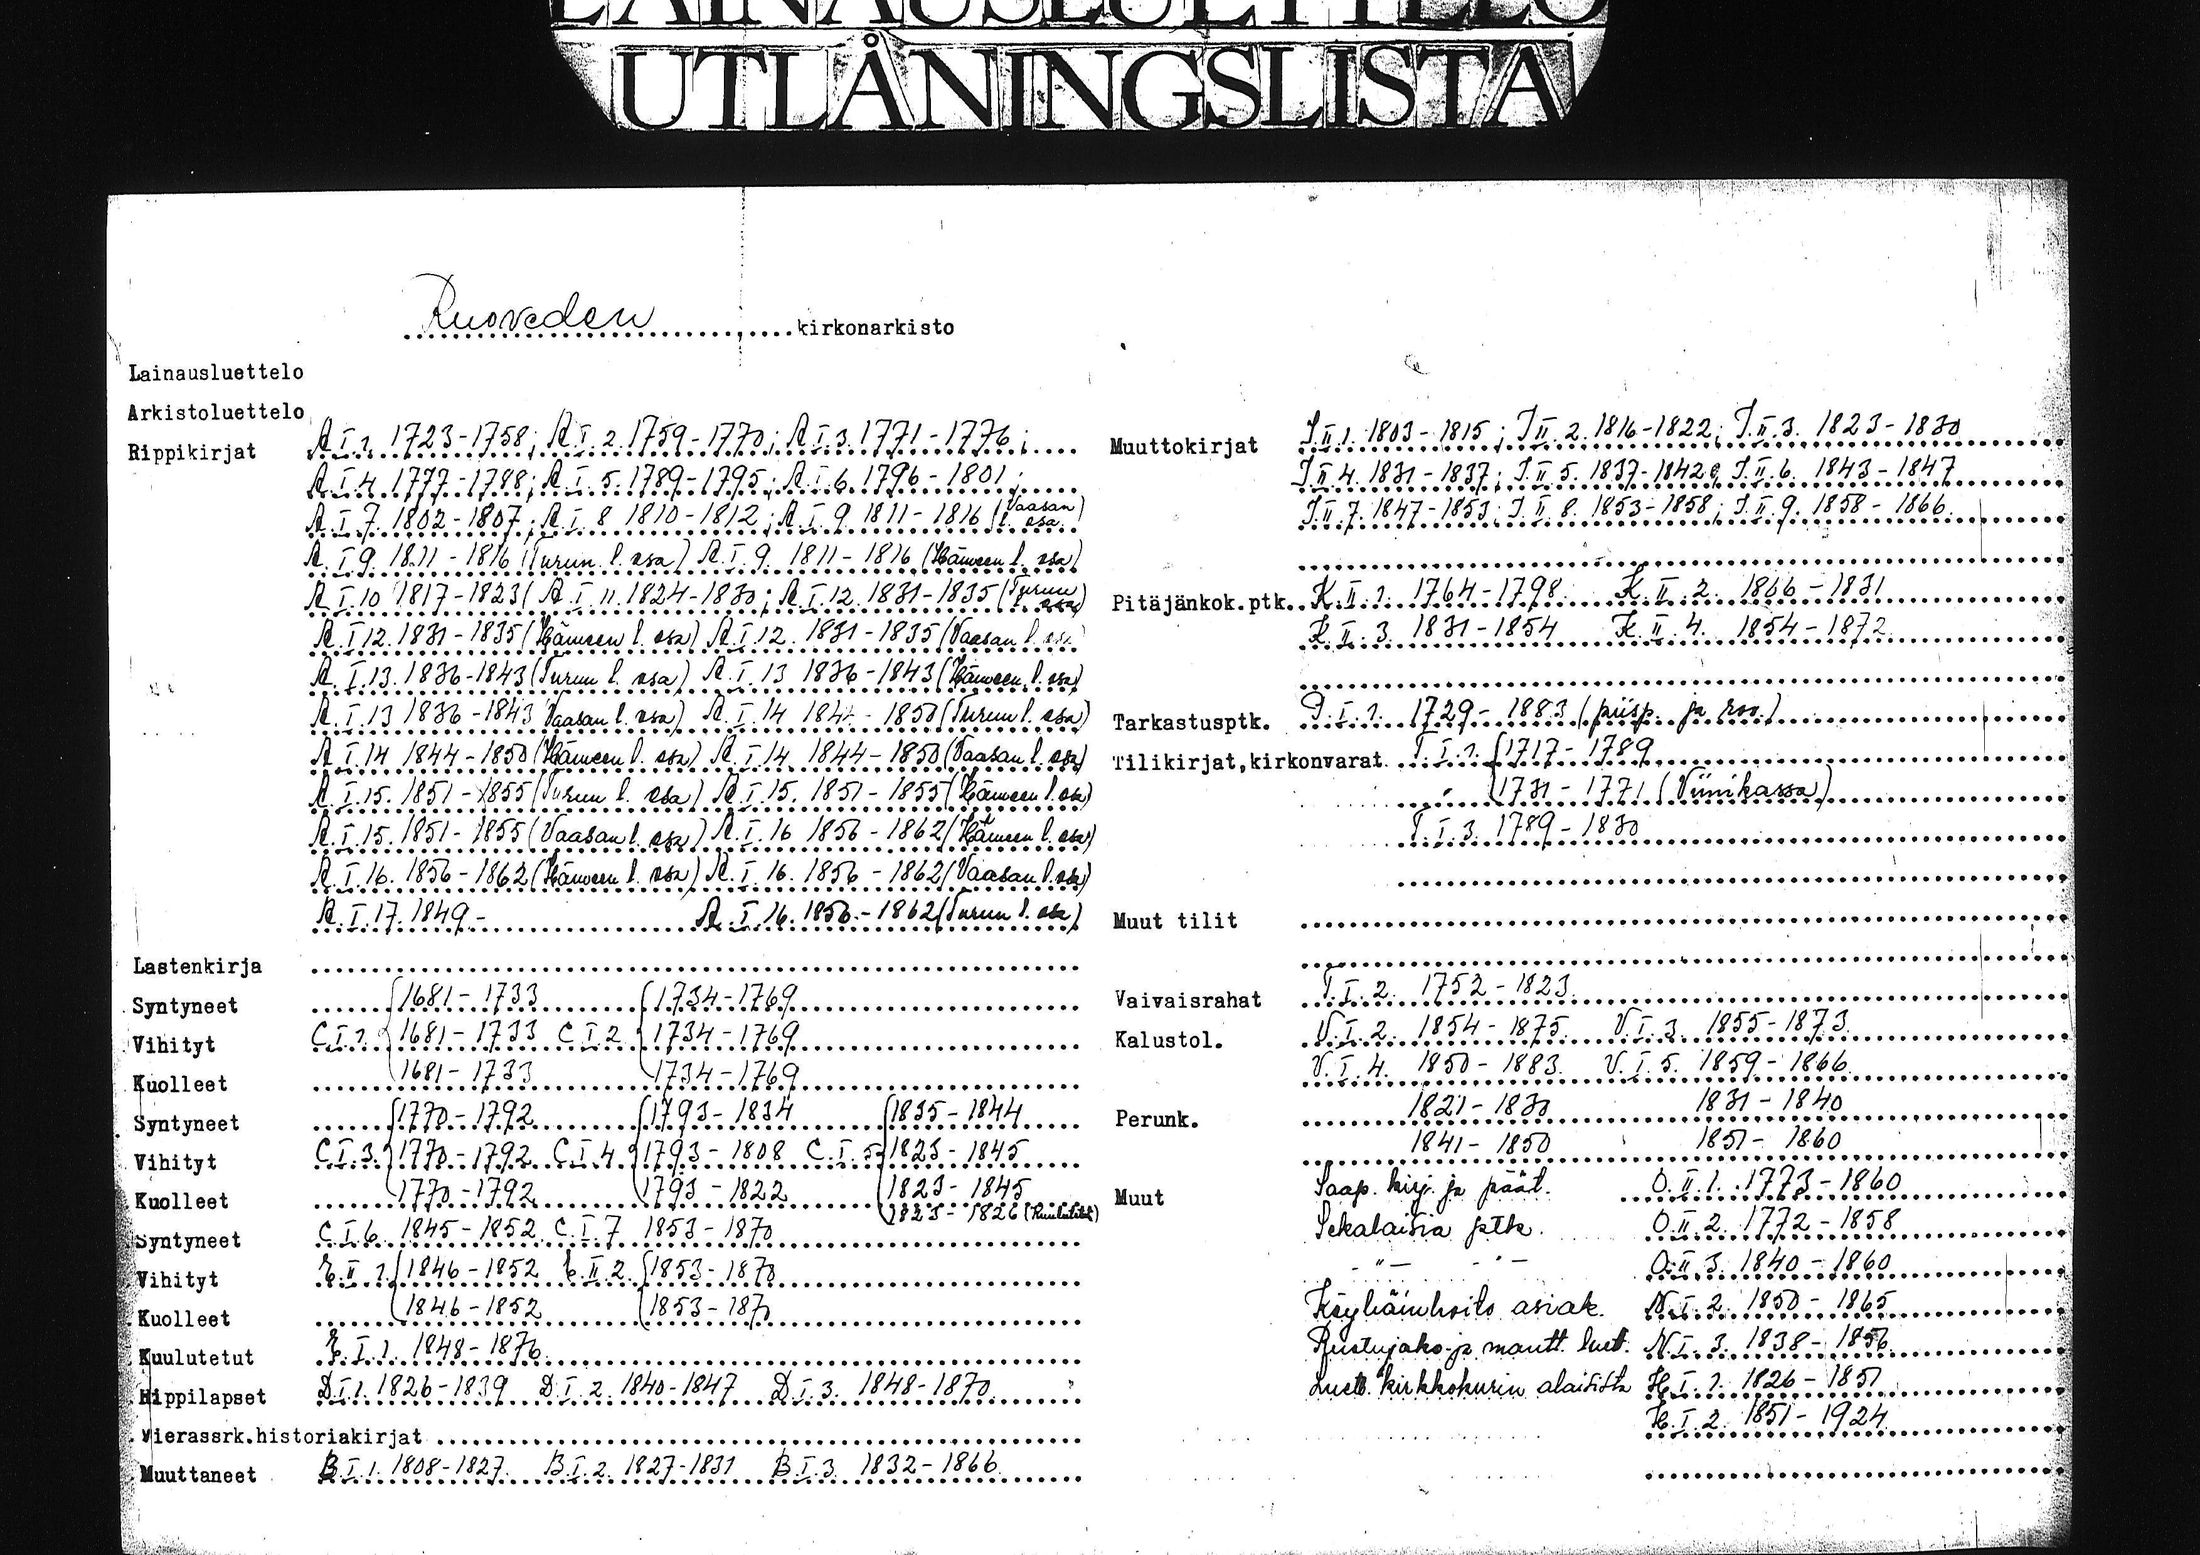 LAINAUSLUETTELO
UTLÅNINGSLISTA
Ruoveden kirkonarkisto
Lainausluettelo
Arkistoluettelo
Rippikirjat A.I.1. 1723-1758; A.I.2. 1759-1770; A.I.3. 1771-1776;
A.I.4. 1777-1788; A.I.5. 1789-1795; A.I.6. 1796-1801;
A.I.7. 1802-1807; A.I.8 1810-1812; A.I.9. 1811-1816 (Vaasan l. osa)
A.I.9. 1811-1816 (Turun l. osa) A.I.9. 1811-1816 (Hämeen l. osa)
A.I.10 1817-1823( A.I.11. 1824-1830; A.I.12. 1831-1835 (Turun l. osa)
A.I.12. 1831-1835 (Hämeen l. osa) A.I.12. 1831-1835 (Vaasan l. osa
A.I.13. 1836-1843 (Turun l. osa) A.I.13 1836-1843 (Hämeen l. osa)
A.I.13 1836-1843 Vaasan l. osa) A.I.14 1844-1850 (Turun l. osa)
A.I.14 1844-1850 (Hämeen l. osa) A.I.14 1844-1850 (Vaasan l. osa)
A.I.15. 1851-1855 (Turun l. osa) A.I.15. 1851-1855 (Hämeen l. osa)
A.I.15. 1851-1855 (Vaasan l. osa) A.I.16 1856-1862 (Hämeen l. osa)
A.I.16. 1856-1862 (Hämeen l. osa) A.I.16. 1856-1862 (Vaasan l. osa)
A.I.17. 1849- A.I.16. 1856-1862 (Turun l. osa)
Lastenkirja
Syntyneet 1681-1733 1734-1769
Vihityt C.I.1. 1681-1733 C.I.2. 1734-1769
Kuolleet 1681-1733 1734-1769
Syntyneet 1770-1792 1793-1834 1835-1844
Vihityt C.I.3. 1770-1792 C.I.4. 1793-1808 C.I.5. 1823-1845
Kuolleet 1770-1792 1793-1822 1823-1845
1823-1826 (Kuulutetut)
Syntyneet C.I.6. 1845-1852 C.I.7 1853-1870
Vihityt E.II.1. 1846-1852 E.II.2. 1853-1870
Kuolleet 1846-1852 1853-187
Kuulutetut E.I.1. 1848-1876
Rippilapset D.I.1. 1826-1839 D.I.2. 1840-1847 D.I.3. 1848-1870
Vierassrk.historiakirjat
Muuttaneet B.I.1. 1808-1827 B.I.2. 1827-1831 B.I.3. 1832-1866
Muuttokirjat J.II.1. 1803-1815; J.II.2. 1816-1822; J.II.3. 1823-1830
J.II.4. 1831-1837; J.II.5. 1837-1842; J.II.6. 1843-1847
J.II.7. 1847-1853; J.II.8. 1853-1858; J.II.9. 1858-1866
Pitäjänkok.ptk. K.II.1. 1764-1798 K.II.2. 1866-1831
K.II.3. 1831-1854 K.II.4. 1854-1872
Tarkastusptk. P.I.1. 1729-1883 (piisp. ja rov.)
Tilikirjat,kirkonvarat T.I.1. 1717-1789
1731-1771 (Viinikassa)
T.I.3. 1789-1830
Muut tilit
Vaivaisrahat T.I.2. 1752-1823
Kalustol. V.I.2. 1854-1875 V.I.3. 1855-1873
V.I.4. 1850-1883 V.I.5. 1859-1866
Perunk. 1821-1830 1831-1840
1841-1850 1851-1860
Muut Saap. kirj. ja päät. O.II.1. 1773-1860
Sekalaisia ptk. O.II.2. 1772-1858
-"- -"- O.II.3. 1840-1860
Köyhäinhoito asiak. N.I.2. 1850-1865
Ruotujako- ja mantt. luet. N.I.3. 1838-1856
Luett. kirkkokurin alaisista H.I.1. 1826-1851
H.I.2. 1851-1924